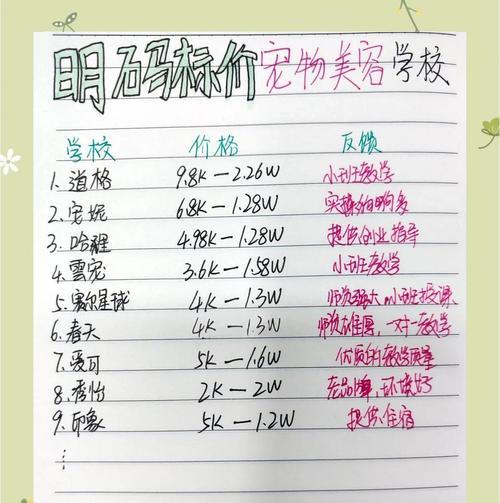 明码标价宠物美容学校
学校 价格 反馈
1.道格 9.8K—2.26W 小班教学
2.安妮 6.8K—1.28W 实操细明多
3.哈雅 4.98K—1.28W 提供创业指导
4.雲宠 3.6K—1.58W 小班教学
5.赛尔星球 4K—1.3W 师资强大,小班授课
6.春天 4K—1.3W 师资雄厚,一对一教学
7.爱可 5K—1.6W 优质的教学质量
8.秀怡 2K—2W 老品牌,环境好
9.印象 5K—1.2W 提供住宿
⋮